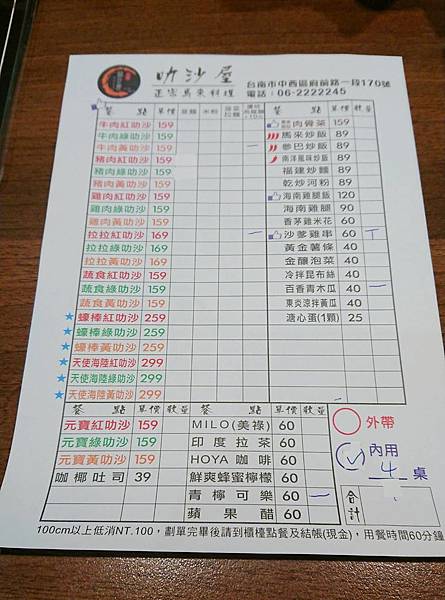 叻沙屋
正宗馬來料理
台南市中西區府前路一段170號
電話：06-2222245
餐 點 單價 豆麵 米粉
牛肉紅叻沙 159
牛肉綠叻沙 159
牛肉黃叻沙 159
豬肉紅叻沙 159
豬肉綠叻沙 159
豬肉黃叻沙 159
雞肉紅叻沙 159
雞肉綠叻沙 159
雞肉黃叻沙 159
拉拉紅叻沙 169
拉拉綠叻沙 169
拉拉黃叻沙 169
蔬食紅叻沙 159
蔬食綠叻沙 159
蔬食黃叻沙 159
蠔棒紅叻沙 259
蠔棒綠叻沙 259
蠔棒黃叻沙 259
天使海陸紅叻沙 299
天使海陸綠叻沙 299
天使海陸黃叻沙 299
餐 點 單價 數量
肉骨菜 159
馬來炒飯 89
參巴炒飯 89
南洋風味炒飯 89
福建炒麵 89
乾炒河粉 89
海南雞腿飯 120
海南雞腿 90
香茅雞米花 60
沙爹雞串 60 T
黃金薯條 40
金釀泡菜 40
冷拌昆布絲 40
百香青木瓜 40 一
東炎涼拌黃瓜 40
溏心蛋(1顆) 25
餐 點 單價 數量
元寶紅叻沙 159
元寶綠叻沙 159
元寶黃叻沙 159
咖椰吐司 39
餐 點 單價 數量
MILO(美祿) 60
印度拉茶 60
HOYA 咖啡 60
鮮爽蜂蜜檸檬 60
青檸可樂 60 一
蘋果醋 60
外帶
內用
4 桌
合計
100cm以上低消NT.100，劃單完畢後請到櫃檯點餐及結帳(現金)，用餐時間60分鐘